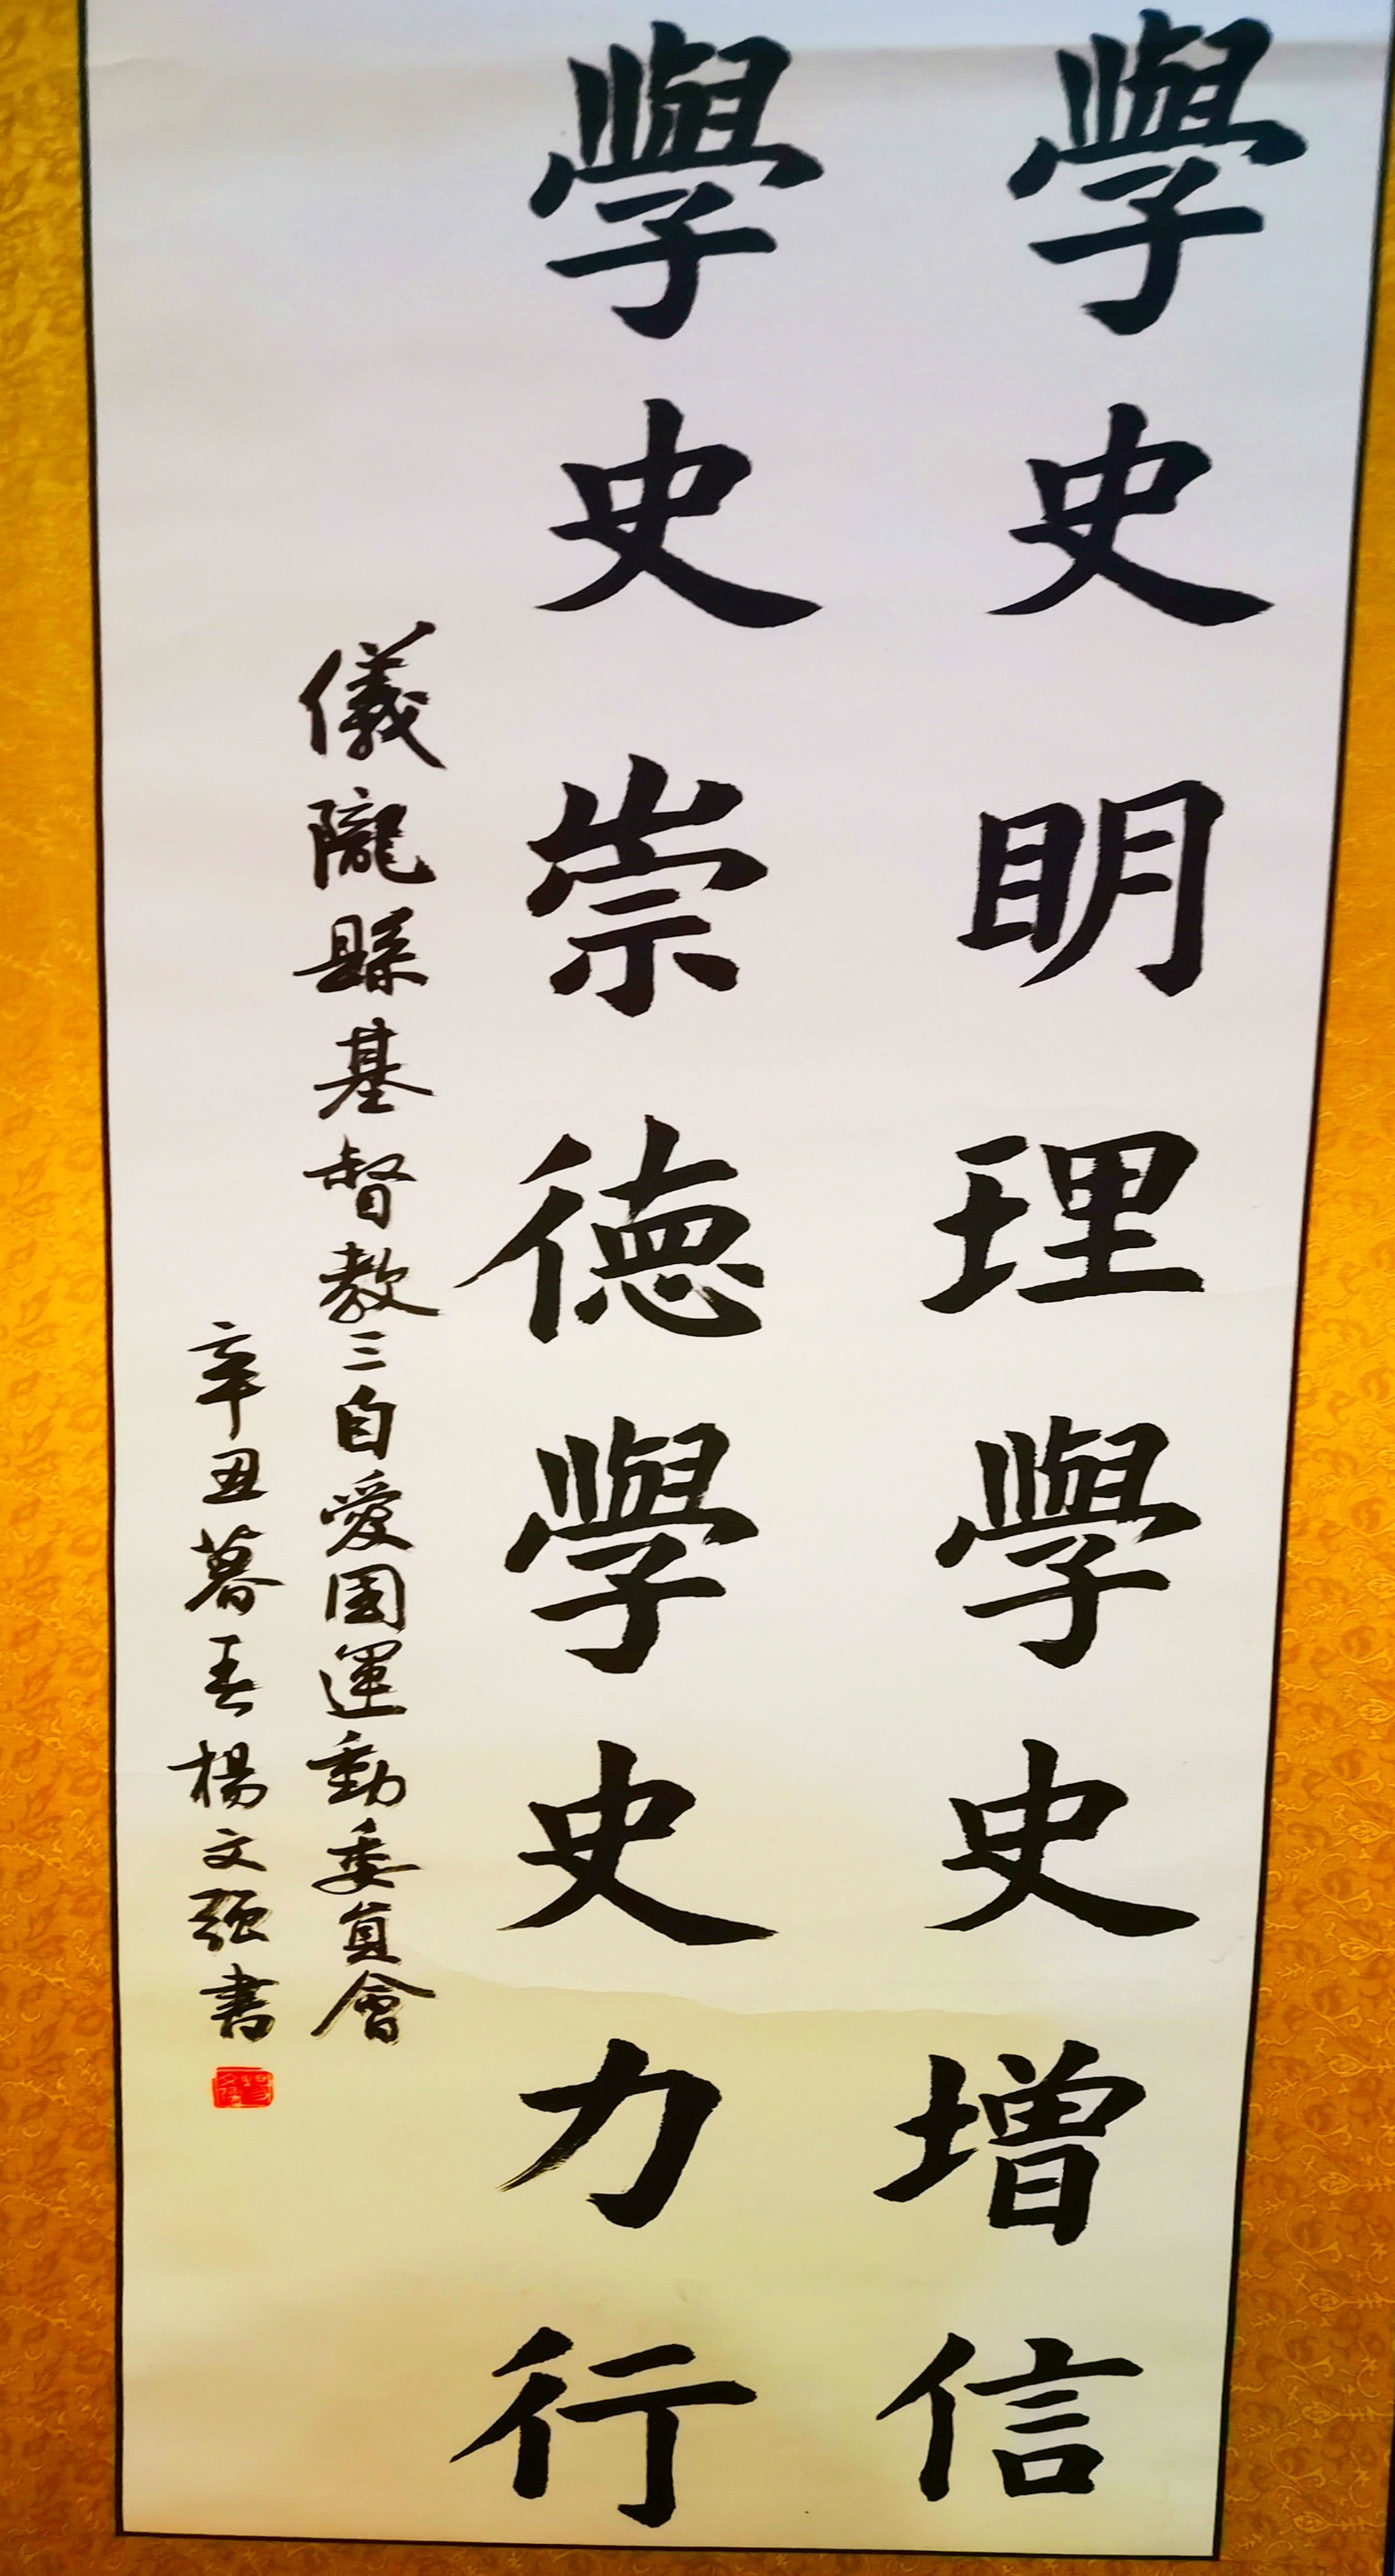 學史明理學史增信
學史崇德學史力行
儀隴縣基督教三自愛国運動委員會
辛丑暮春楊文强書